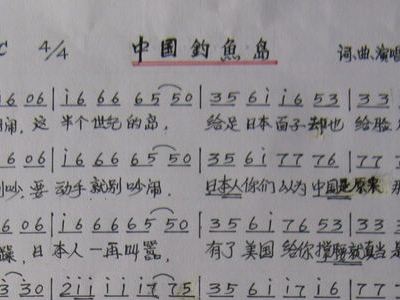 C 4/4 中国釣魚岛 词、曲、演唱
i6 06 | i6 66 65 50 | 35 6i i6 53 | 33
闹, 这 半个世纪的岛, 给足日本面子却也 给脸
i6 06 | i6 66 65 50 | 35 6i 77 76 | 77 7
别吵, 要 动手就别吵闹. 日本人你们以为中国是原来 那
i6 06 | i6 66 65 50 | 35 6i 76 53 | 33
躁, 日本人一再叫嚣. 有了美国给你撑腰就真当是
3 30 | 2i ii i7 75 | 35 6i i6 i6 | 77